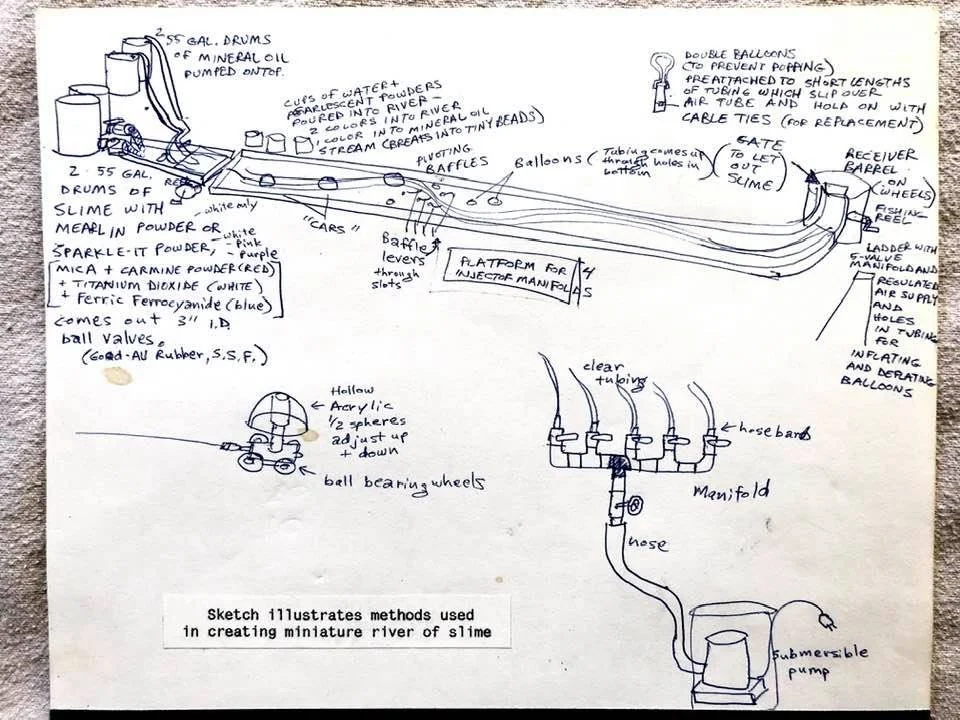 2 55 GAL. DRUMS
OF MINERAL OIL
PUMPED ON TOP.
CUPS OF WATER +
PEARLESCENT POWDERS
POURED INTO RIVER -
2 COLORS INTO RIVER
1 COLOR INTO MINERAL OIL
STREAM (BREAKS INTO TINY BEADS)
PIVOTING
BAFFLES
Balloons (Tubing comes up
through holes in
bottom)
DOUBLE BALLOONS
(TO PREVENT POPPING)
PREATTACHED TO SHORT LENGTHS
OF TUBING WHICH SLIP OVER
AIR TUBE AND HOLD ON WITH
CABLE TIES (FOR REPLACEMENT)
GATE
(TO LET
OUT
SLIME)
RECEIVER
BARREL
(ON
WHEELS)
FISHING
REEL
LADDER WITH
5-VALVE
MANIFOLD AND
REGULATED
AIR SUPPLY
AND
HOLES
IN TUBING
FOR
INFLATING
AND
DEFLATING
BALLOONS
2-55 GAL.
DRUMS OF
SLIME WITH
MEARLIN POWDER OR - white only
SPARKLE-IT POWDER, - white
- Pink
- purple
MICA + CARMINE POWDER (RED)
+ TITANIUM DIOXIDE (WHITE)
+ Ferric Ferrocyanide (blue)
comes out 3" I.D
ball valves.
(Good-All Rubber, S.S.F.)
REEL
"CARS"
Baffle
levers
through
slots
PLATFORM FOR
INJECTOR MANIFOLDS
4
5
Hollow
Acrylic
1/2 spheres
adjust up
+ down
ball bearing wheels
clear
tubing
hosebarb
Manifold
hose
submersible
pump
Sketch illustrates methods used
in creating miniature river of slime